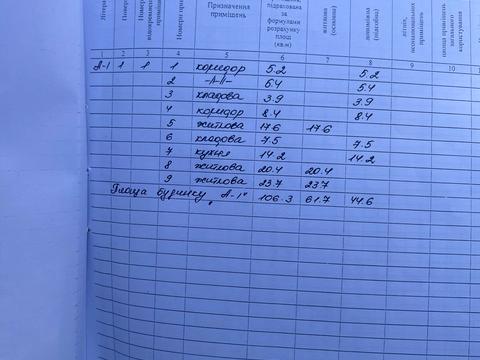 Літера
Номери
Призначення
приміщень
підрахована
за
формулами
розрахунку
площ
(кв.м)
житлова
(основна)
допоміжна
(підсобна)
літніх,
неопалювальних
приміщень
площа приміщень
загального
користування
1 2 3 4 5 6 7 8 9 10
А-І 1 1 1 коридор 5.2 5.2
2 -//- 5.4 5.4
3 кладова 3.9 3.9
4 коридор 8.4 8.4
5 житлова 17.6 17.6
6 кладова 7.5 7.5
7 кухня 14.2 14.2
8 житлова 20.4 20.4
9 житлова 23.7 23.7
Площа будинку „А-І" 106.3 61.7 44.6